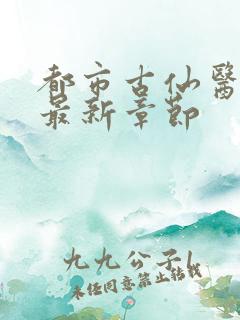 都市古仙醫
最新章節
九九公子1
未经同意禁止转载